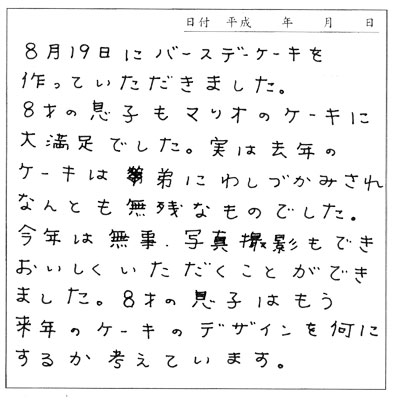 日付 平成 年 月 日
8月19日にバースデーケーキを
作っていただきました。
8才の息子もマリオのケーキに
大満足でした。実は去年の
ケーキは弟にわしづかみされ
なんとも無残なものでした。
今年は無事、写真撮影もでき
おいしくいただくことができ
ました。8才の息子はもう
来年のケーキのデザインを何に
するか考えています。